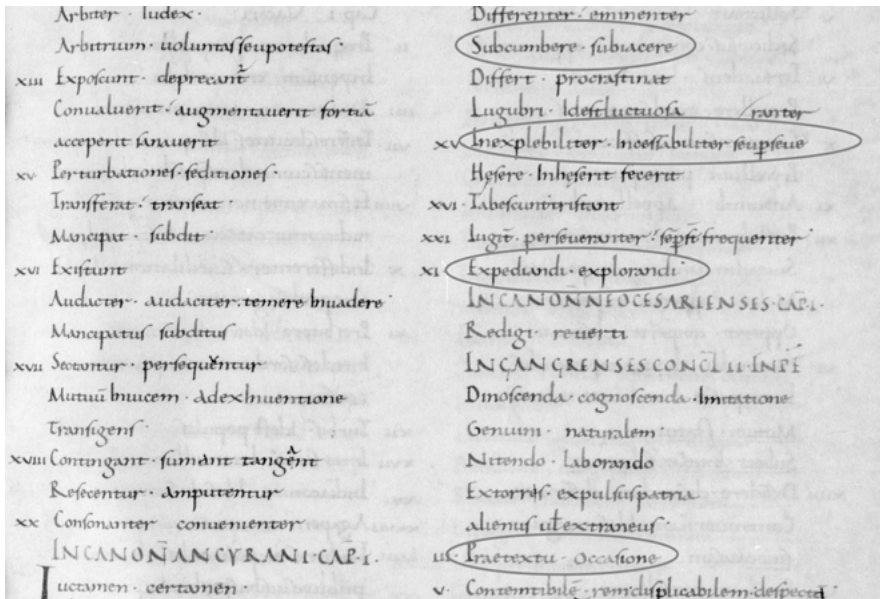 Arbiter · Iudex ·
Arbitrium · uoluntas seu potestas ·
xiii Exposcunt · deprecant
Convaluerit · augmentauerit fortiā
acceperit sanauerit
xv Perturbationes · seditiones ·
Transferat · transeat ·
Mancipat · subdit ·
xvi Existunt
Audacter · audaciter · temere Inuadere
Mancipatus subditus
xvii Sectantur · persequentur
Mutuū Inuicem · adexInuentione
Transigens ·
xviii Contingant · sumant tangent
Resecentur · amputentur
xx Consonanter convenienter
INCANON̄ ANCYRANI CAP · I ·
Luctamen · certamen
Differenter · eminenter
Subcumbere · subiacere
Differt · procrastinat
Lugubri · Idest luctuosa ranter
xv Inexplebiliter · Incessabiliter seu pseue
Hęsere · Inhęserit fecerit
xvi · Tabescunt tristant
xxi Iugit · perseueranter · frequenter
xi Expediandi · explorandi
INCANON̄ NEOCESARIENSES · CAP · I ·
Redigi reuerti
INCANGRENSES CONCĪL II · INPĒ
Dinoscenda cognoscenda · Imitatione
Genuum · naturalem ·
Nitendo · laborando
Extorris · expulsus patria
alienus ut extraneus ·
iii · Praetextu · Occasione
v · Contemtibilē · rem displicabilem · despectā